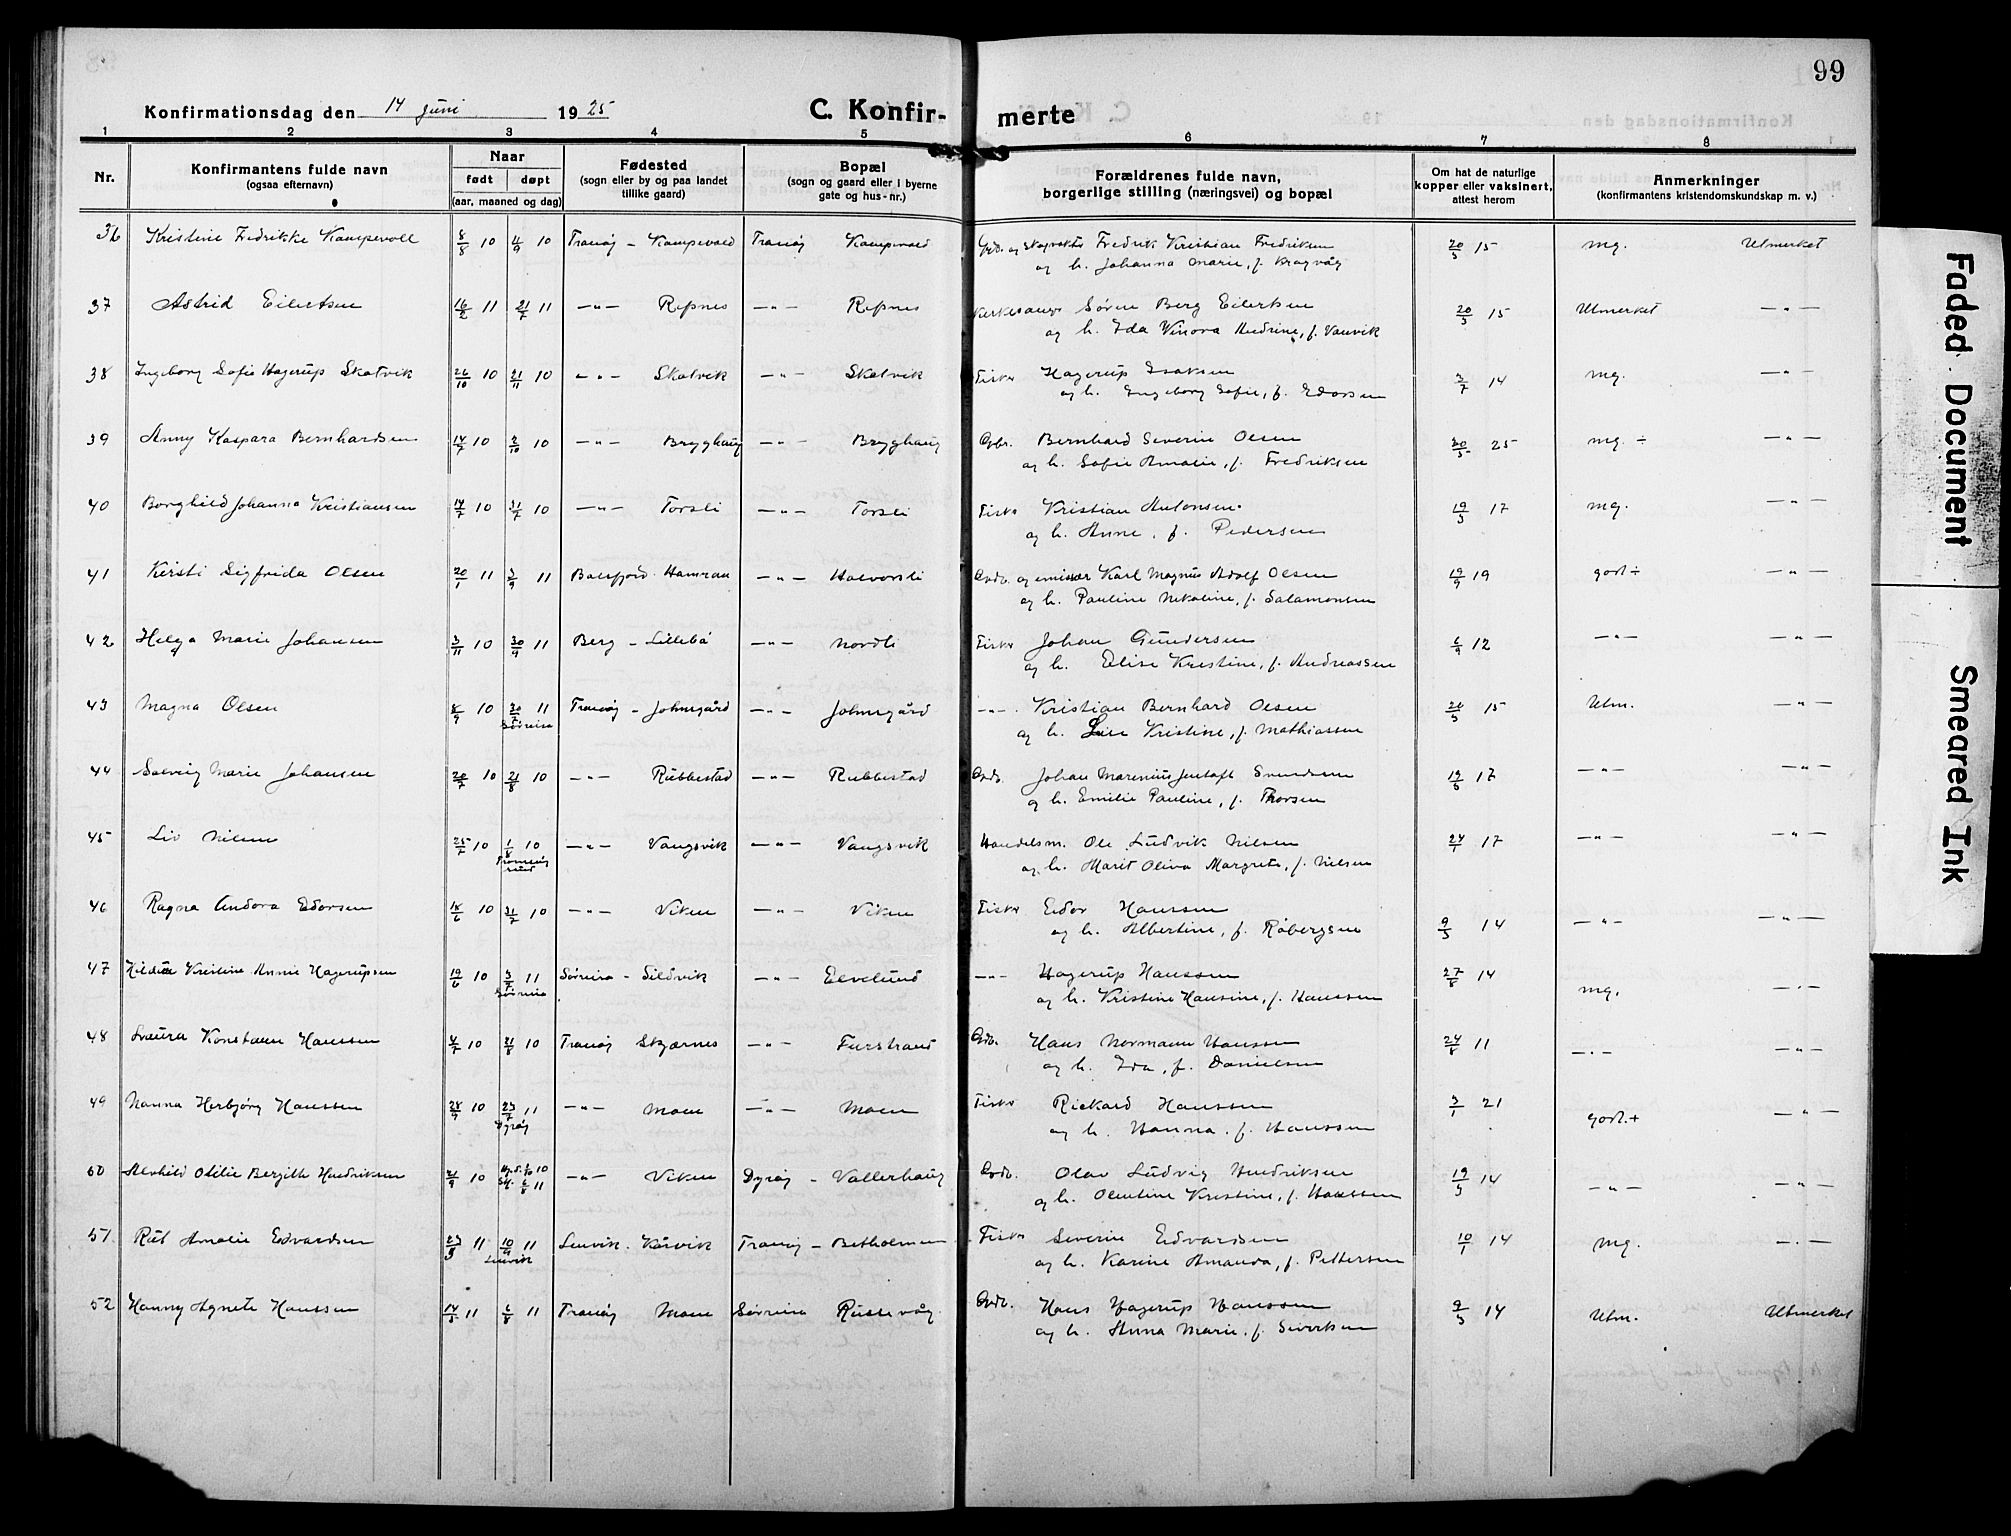 99
Konfirmationsdag den 14 juni 1925 C. Konfir- merte
1 2 3 4 5 6 7 8
Nr. Konfirmantens fulde navn (ogsaa efternavn) Naar født døpt (aar, maaned og dag) Fødested (sogn eller by og paa landet tillike gaard) Bopæl (sogn og gaard eller i byerne gate og hus-nr.) Forældrenes fulde navn, borgerlige stilling (næringsvei) og bopæl Om hat de naturlige kopper eller vaksinert, attest herom Anmerkninger (konfirmantens kristendomskundskap m. v.)
36 Kristine Fredrikke Kampevoll 8/8 10 4/9 10 Tranøy - Kampevold Tranøy Kampevold Fredrik Kristian Fredriksen 20/5 15 mg. Utmerket
og h. Johanna Marie, f. Kragvåg
37 Astrid Eilertsen 16/2 11 21/7 11 -"- Refsnes -"- Refsnes Kirkesanger Søren Berg Eilertsen 20/5 15 Utmerket -"-
og h. Ida Vinora Andrine, f. Vanvik
38 Ingeborg Sofie Hagerup Skatvik 26/10 10 21/11 10 -"- Skatvik -"- Skatvik Fisker Hagerup Isaksen 2/7 14 mg. -"-
og h. Ingeborg Sofie, f. Edorsen
39 Anny Kaspara Bernhardsen 14/7 10 2/10 10 -"- Brygghaug -"- Brygghaug Gbr. Bernhard Severin Olsen 30/5 25 mg ÷ -"-
og h. Sofie Amalie, f. Fredriksen
40 Borghild Johanna Kristiansen 14/7 10 31/7 10 -"- Torsli -"- Torsli Fisker Kristian Antonsen 19/5 17 mg. -"-
og h. Anne, f. Pedersen
41 Kirsti Sigfrida Olsen 20/1 11 3/9 11 Balsfjord - Hamran -"- Halvorsli Grdb. og emissær Karl Magnus Adolf Olsen 19/9 19 godt ÷ -"-
og h. Pauline Nikoline, f. Salamonsen
42 Helga Marie Johansen 3/11 10 30/9 11 Berg - Lillebø -"- Nordli Fisker Johan Gundersen 6/9 12 -"- -"-
og h. Elise Kristine, f. Andreassen
43 Magna Olsen 8/9 10 30/7 11 Tranøy - Johnsgård -"- Johnsgård -"- Kristian Bernhard Olsen 20/5 15 Utm. -"-
Sørreisa og h. Lise Kristine, f. Mathiassen
44 Solveig Marie Johansen 20/7 10 21/8 10 -"- Rubbestad -"- Rubbestad Grdb. Johan Marenius Jentoft Svendsen 19/5 17 -"- -"-
og h. Emilie Pauline, f. Thorsen
45 Liv Nilsen 25/7 10 1/8 10 -"- Vangsvik -"- Vangsvik Handelsm. Ole Ludvik Nilsen 24/1 17 -"- -"-
Tromøysund og h. Marit Oliva Margrete, f. Nielsen
46 Ragna Andora Edorsen 18/6 10 31/7 10 -"- Viken -"- Viken Fisker Edor Hanssen 9/5 14 -"- -"-
og h. Albertine, f. Robergsen
47 Kristine Annie Hagerupsen 19/6 10 3/7 11 Sørreisa - Sildvik -"- Elvelund -"- Hagerup Hanssen 27/8 14 mg. -"-
Sørreisa og h. Kristine Hansine, f. Hanssen
48 Laura Konstanse Hanssen 4/7 10 21/8 10 Tranøy Skjærnes -"- Furstrand Gdb. Hans Normann Hanssen 24/8 11 -"- -"-
og h. Ida, f. Danielsen
49 Nanna Herbjørg Hanssen 28/9 10 23/7 11 -"- Moen -"- Moen Fisker Rickard Hanssen 3/1 21 godt + -"-
Dyrøy og h. Hanna, f. Hanssen
50 Alvhild Otilie Bergith Hendriksen 21/9 10 -"- Viken Dyrøy - Vallerhaug Grdb. Olav Ludvig Hendriksen 19/5 14 -"- -"-
og h. Olentine Kristine, f. Hanssen
51 Rut Amalie Edvardsen 23/5 11 10/9 11 Lenvik - Kårvik Tranøy - Betholmen Fisker Severin Edvardsen 10/1 14 mg. -"-
Lenvik og h. Karine Amanda, f. Pettersen
52 Hanny Agnete Hanssen 14/5 11 6/8 11 Tranøy Moen Sørreisa Russevåg Grdb. Hans Hagerup Hanssen 9/5 14 Utm. Utmerket
og h. Anna Marie, f. Sivertsen
Faded Document
Smeared Ink